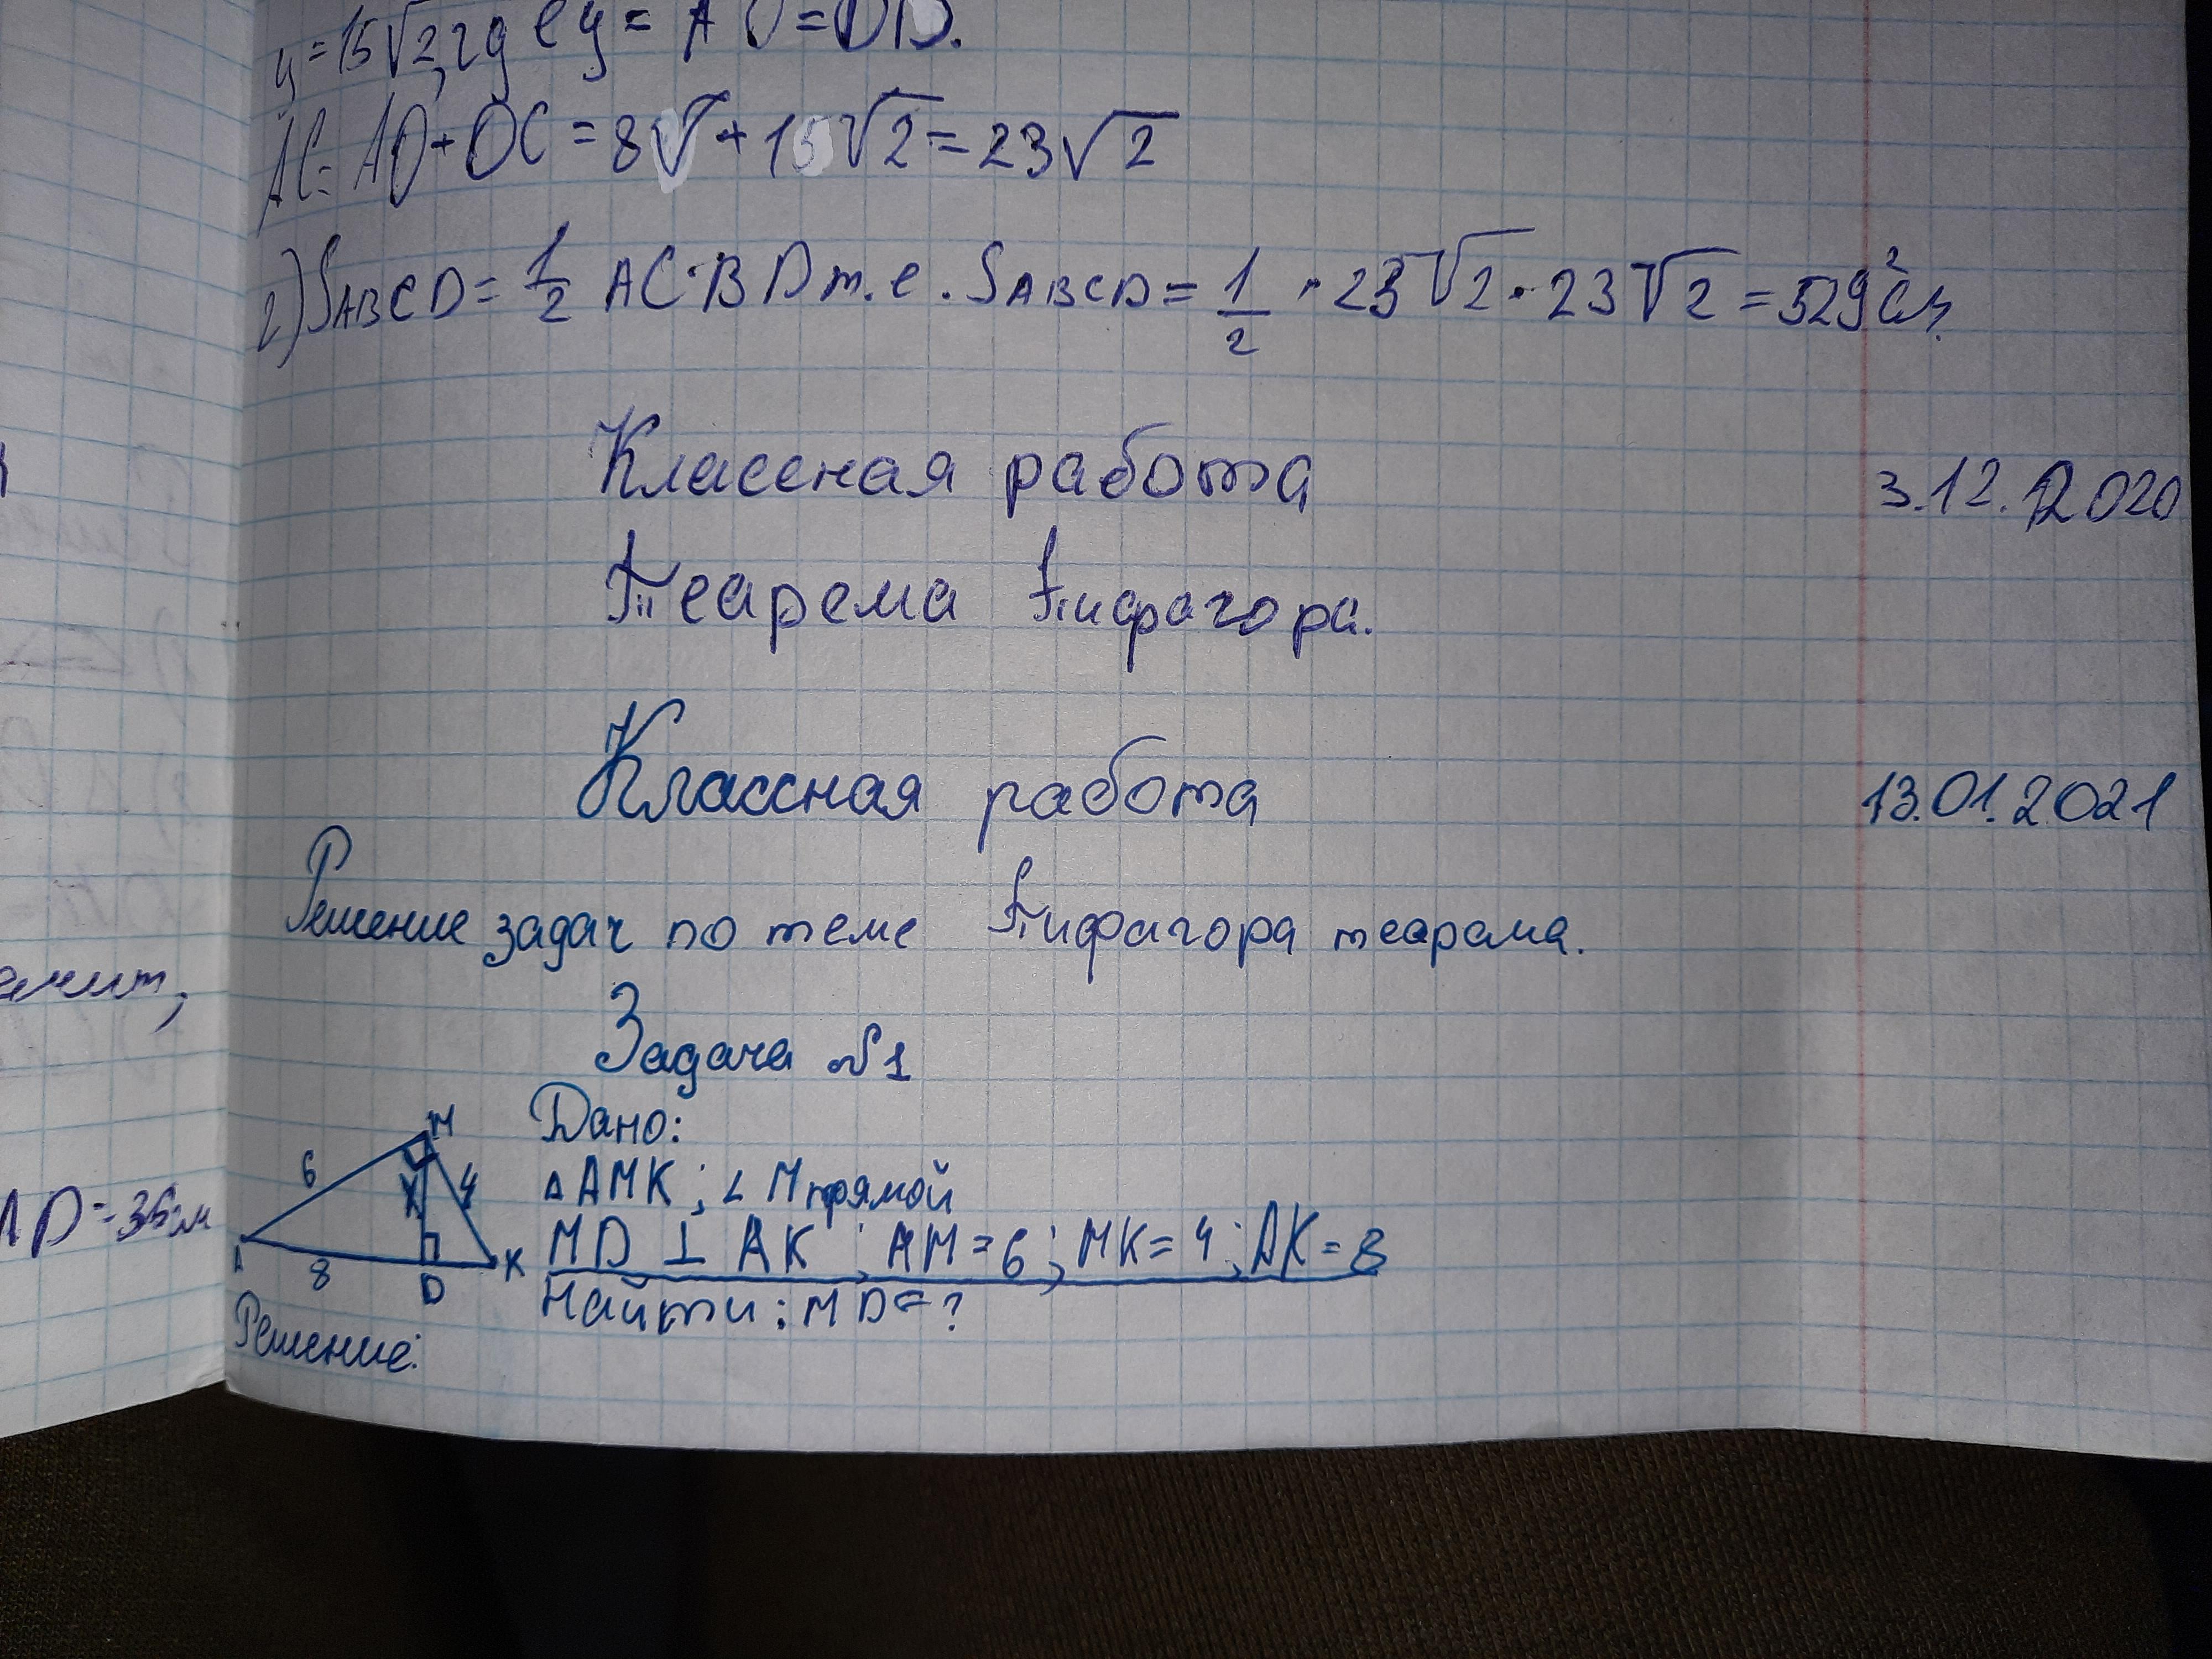 y=15√2, где y= AO=OD.
AC= AO+OC=8√+15√2=23√2
2) SABCD= 1/2 AC·BD т.е. SABCD= 1/2 · 23√2 · 23√2 = 529 см²
Классная работа 3.12.2020
Теарема Пифагора.
Классная работа 13.01.2021
Решение задач по теме Пифагора теарама.
Задача №1
Дано:
△ AMK; ∠ M прямой
MD ⊥ AK; AM=6; MK=4; AK=8
Найти: MD=?
M
6
X
4
A
8
D
K
Решение:
AD=36см